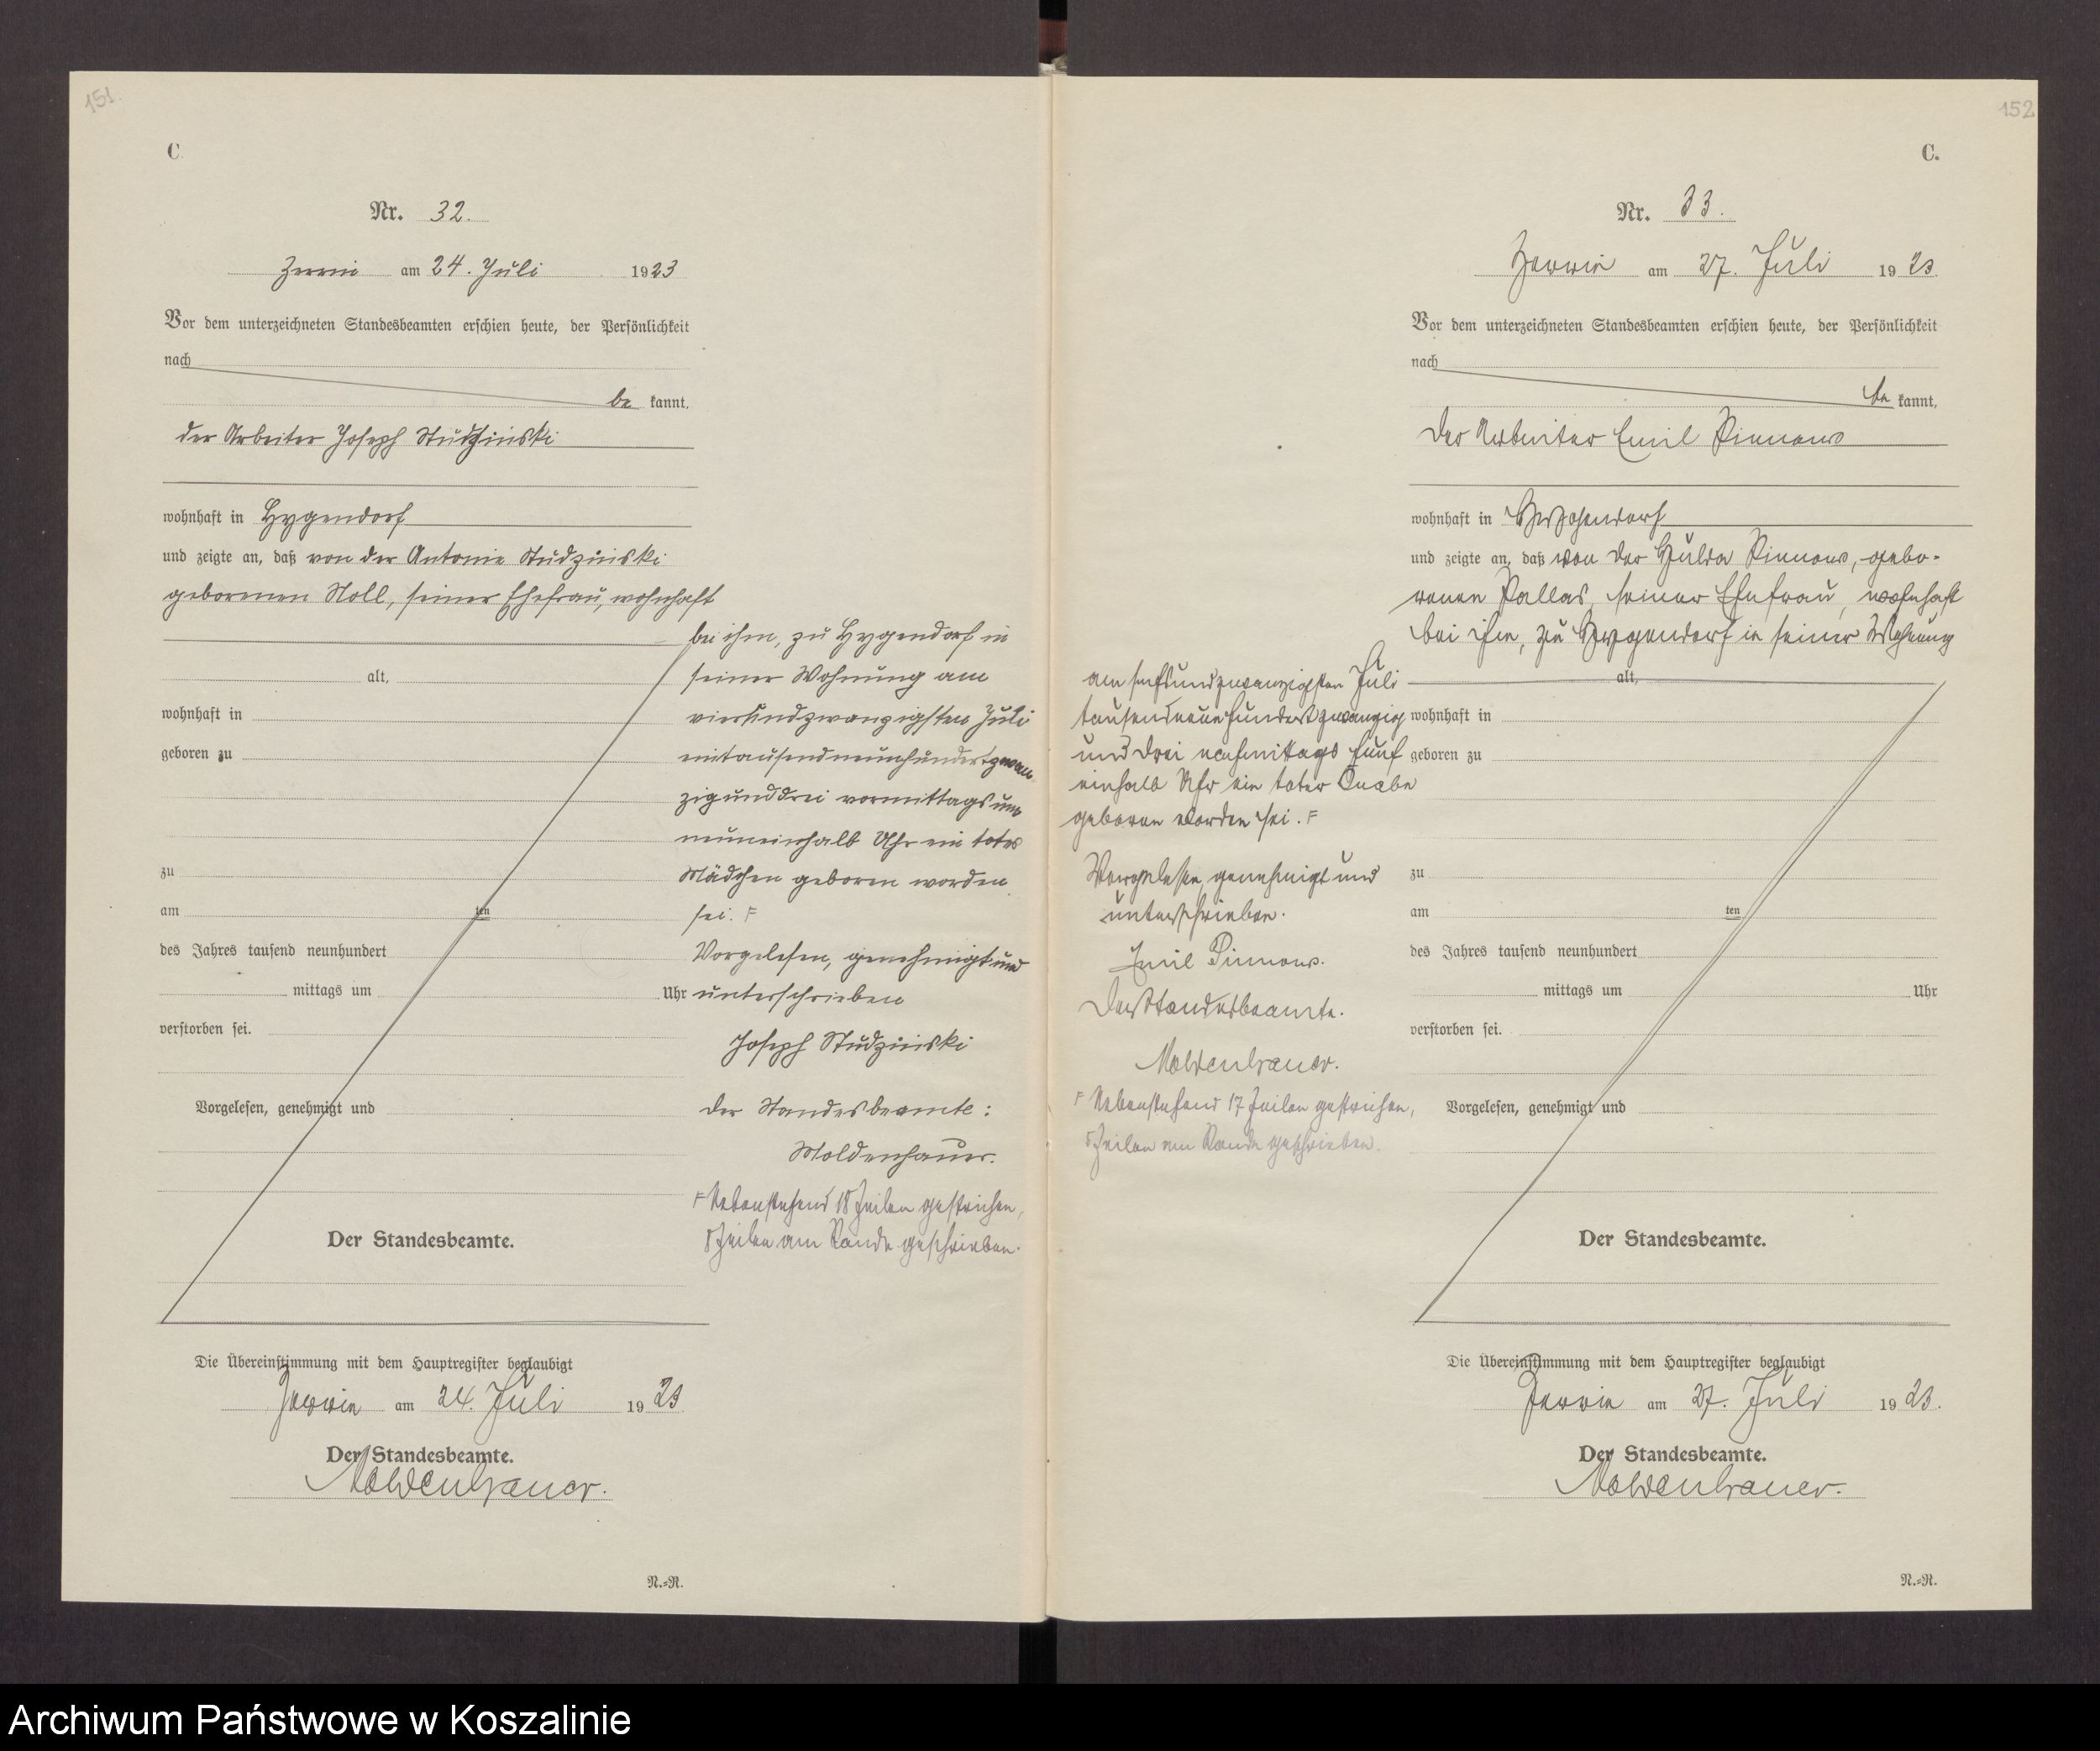 151.
C.
Nr. 32.
Zerrin am 24. Juli 1923
Vor dem unterzeichneten Standesbeamten erschien heute, der Persönlichkeit
nach
be kannt,
der Arbeiter Joseph Studzinski
wohnhaft in Hygendorf
und zeigte an, daß von der Antonie Studzinski
geborenen Noll, seiner Ehefrau, wohnhaft
bei ihm, zu Hygendorf in
alt, seiner Wohnung am
wohnhaft in vierundzwanzigsten Juli
geboren zu eintausendneunhundertzwan
zigunddrei vormittags um
neuneinhalb Uhr ein totes
zu Mädchen geboren worden
am ten sei. F
des Jahres tausend neunhundert Vorgelesen, genehmigt und
mittags um Uhr unterschrieben
verstorben sei.
Joseph Studzinski
Vorgelesen, genehmigt und der Standesbeamte:
Moldenhauer.
F Nebenstehend 18 Zeilen gestrichen,
Der Standesbeamte. 8 Zeilen am Rande geschrieben.
Die Übereinstimmung mit dem Hauptregister beglaubigt
Zerrin am 24. Juli 1923
Der Standesbeamte.
Moldenhauer.
N.=R.
152
C.
Nr. 33.
Zerrin am 27. Juli 1923.
Vor dem unterzeichneten Standesbeamten erschien heute, der Persönlichkeit
nach
be kannt,
der Arbeiter Emil
wohnhaft in Hygendorf
und zeigte an, daß von der Hulda gebo-
renen Pallas, seiner Ehefrau, wohnhaft
bei ihm, zu Hygendorf in seiner Wohnung
am fünfundzwanzigsten Juli alt,
tausendneunhundertzwanzig wohnhaft in
und drei nachmittags fünf geboren zu
einhalb Uhr ein toter Knabe
geboren worden sei. F
Vorgelesen, genehmigt und zu
unterschrieben. am ten
Emil
des Jahres tausend neunhundert
mittags um Uhr
Der Standesbeamte.
verstorben sei.
Moldenhauer.
F Nebenstehend 17 Zeilen gestrichen, Vorgelesen, genehmigt und
5 Zeilen am Rande geschrieben.
Der Standesbeamte.
Die Übereinstimmung mit dem Hauptregister beglaubigt
Zerrin am 27. Juli 1923.
Der Standesbeamte.
Moldenhauer.
N.=R.
Archiwum Państwowe w Koszalinie